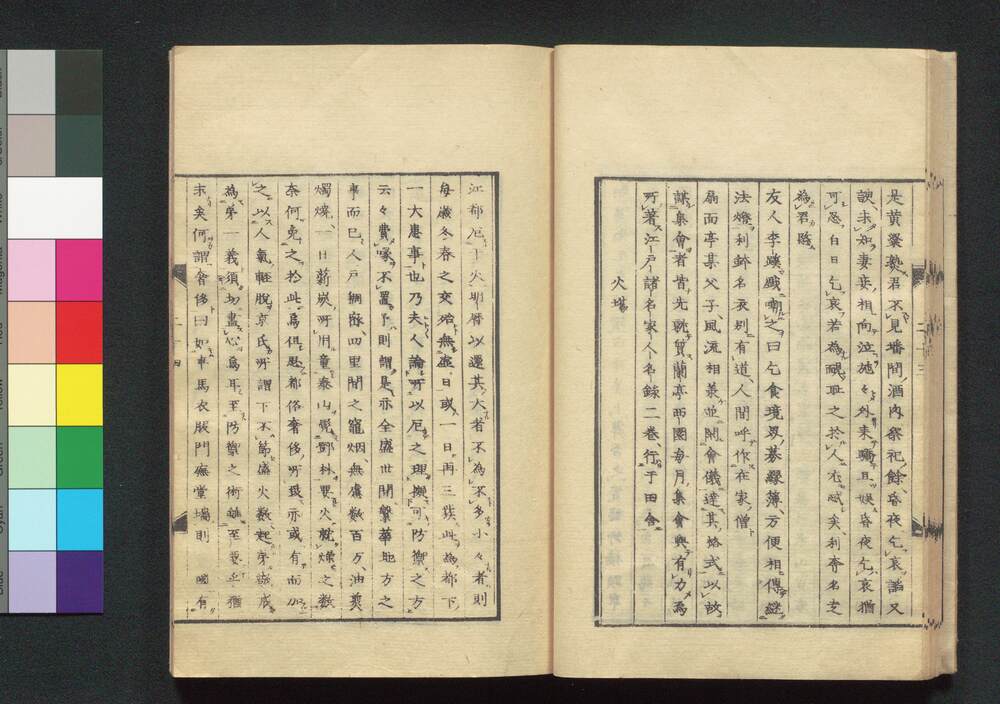 是黄粱熟君不見墦間酒肉祭祀餘昏夜乞哀謟又
諛未知妻妾相向泣施々外来驕且娯昏夜乞哀猶
可忍白日乞哀若為
為君啓
友人李蹊戯嘲之曰乞食境界募縁簿方便相傳継
法燈利鈴名刹有道人間呼作在家僧
扇而亭某父子風流相義並開會儀達其格式以故
謀集會者皆先就質蘭亭両國毎月集會與有力為
所著江戸諸名家人名録二巻行于田舎
火塲
江都厄于火明暦以還其大者不為不多小々者則
毎歳冬春之交殆無虚日或一日再三災此為都下
一大患事也乃夫人論所以厄之理撫可防禦之方
云々費喙不置予則謂是亦全盛世間繁華地方之
事而已人戸稠密四里間之竈烟無慮数百万油
燭燒一日薪炭所用童泰山鄧林要火就燥之数
奈何免之於此為但恐都俗奢侈所致亦或有而加
之以人氣軽脱京氏所謂下不節盛火数起
為第一義須切盡心焉耳至防禦之術至矣猶
末矣何謂奢侈曰如車馬衣服門廡堂塲則國有
二十三
二十四